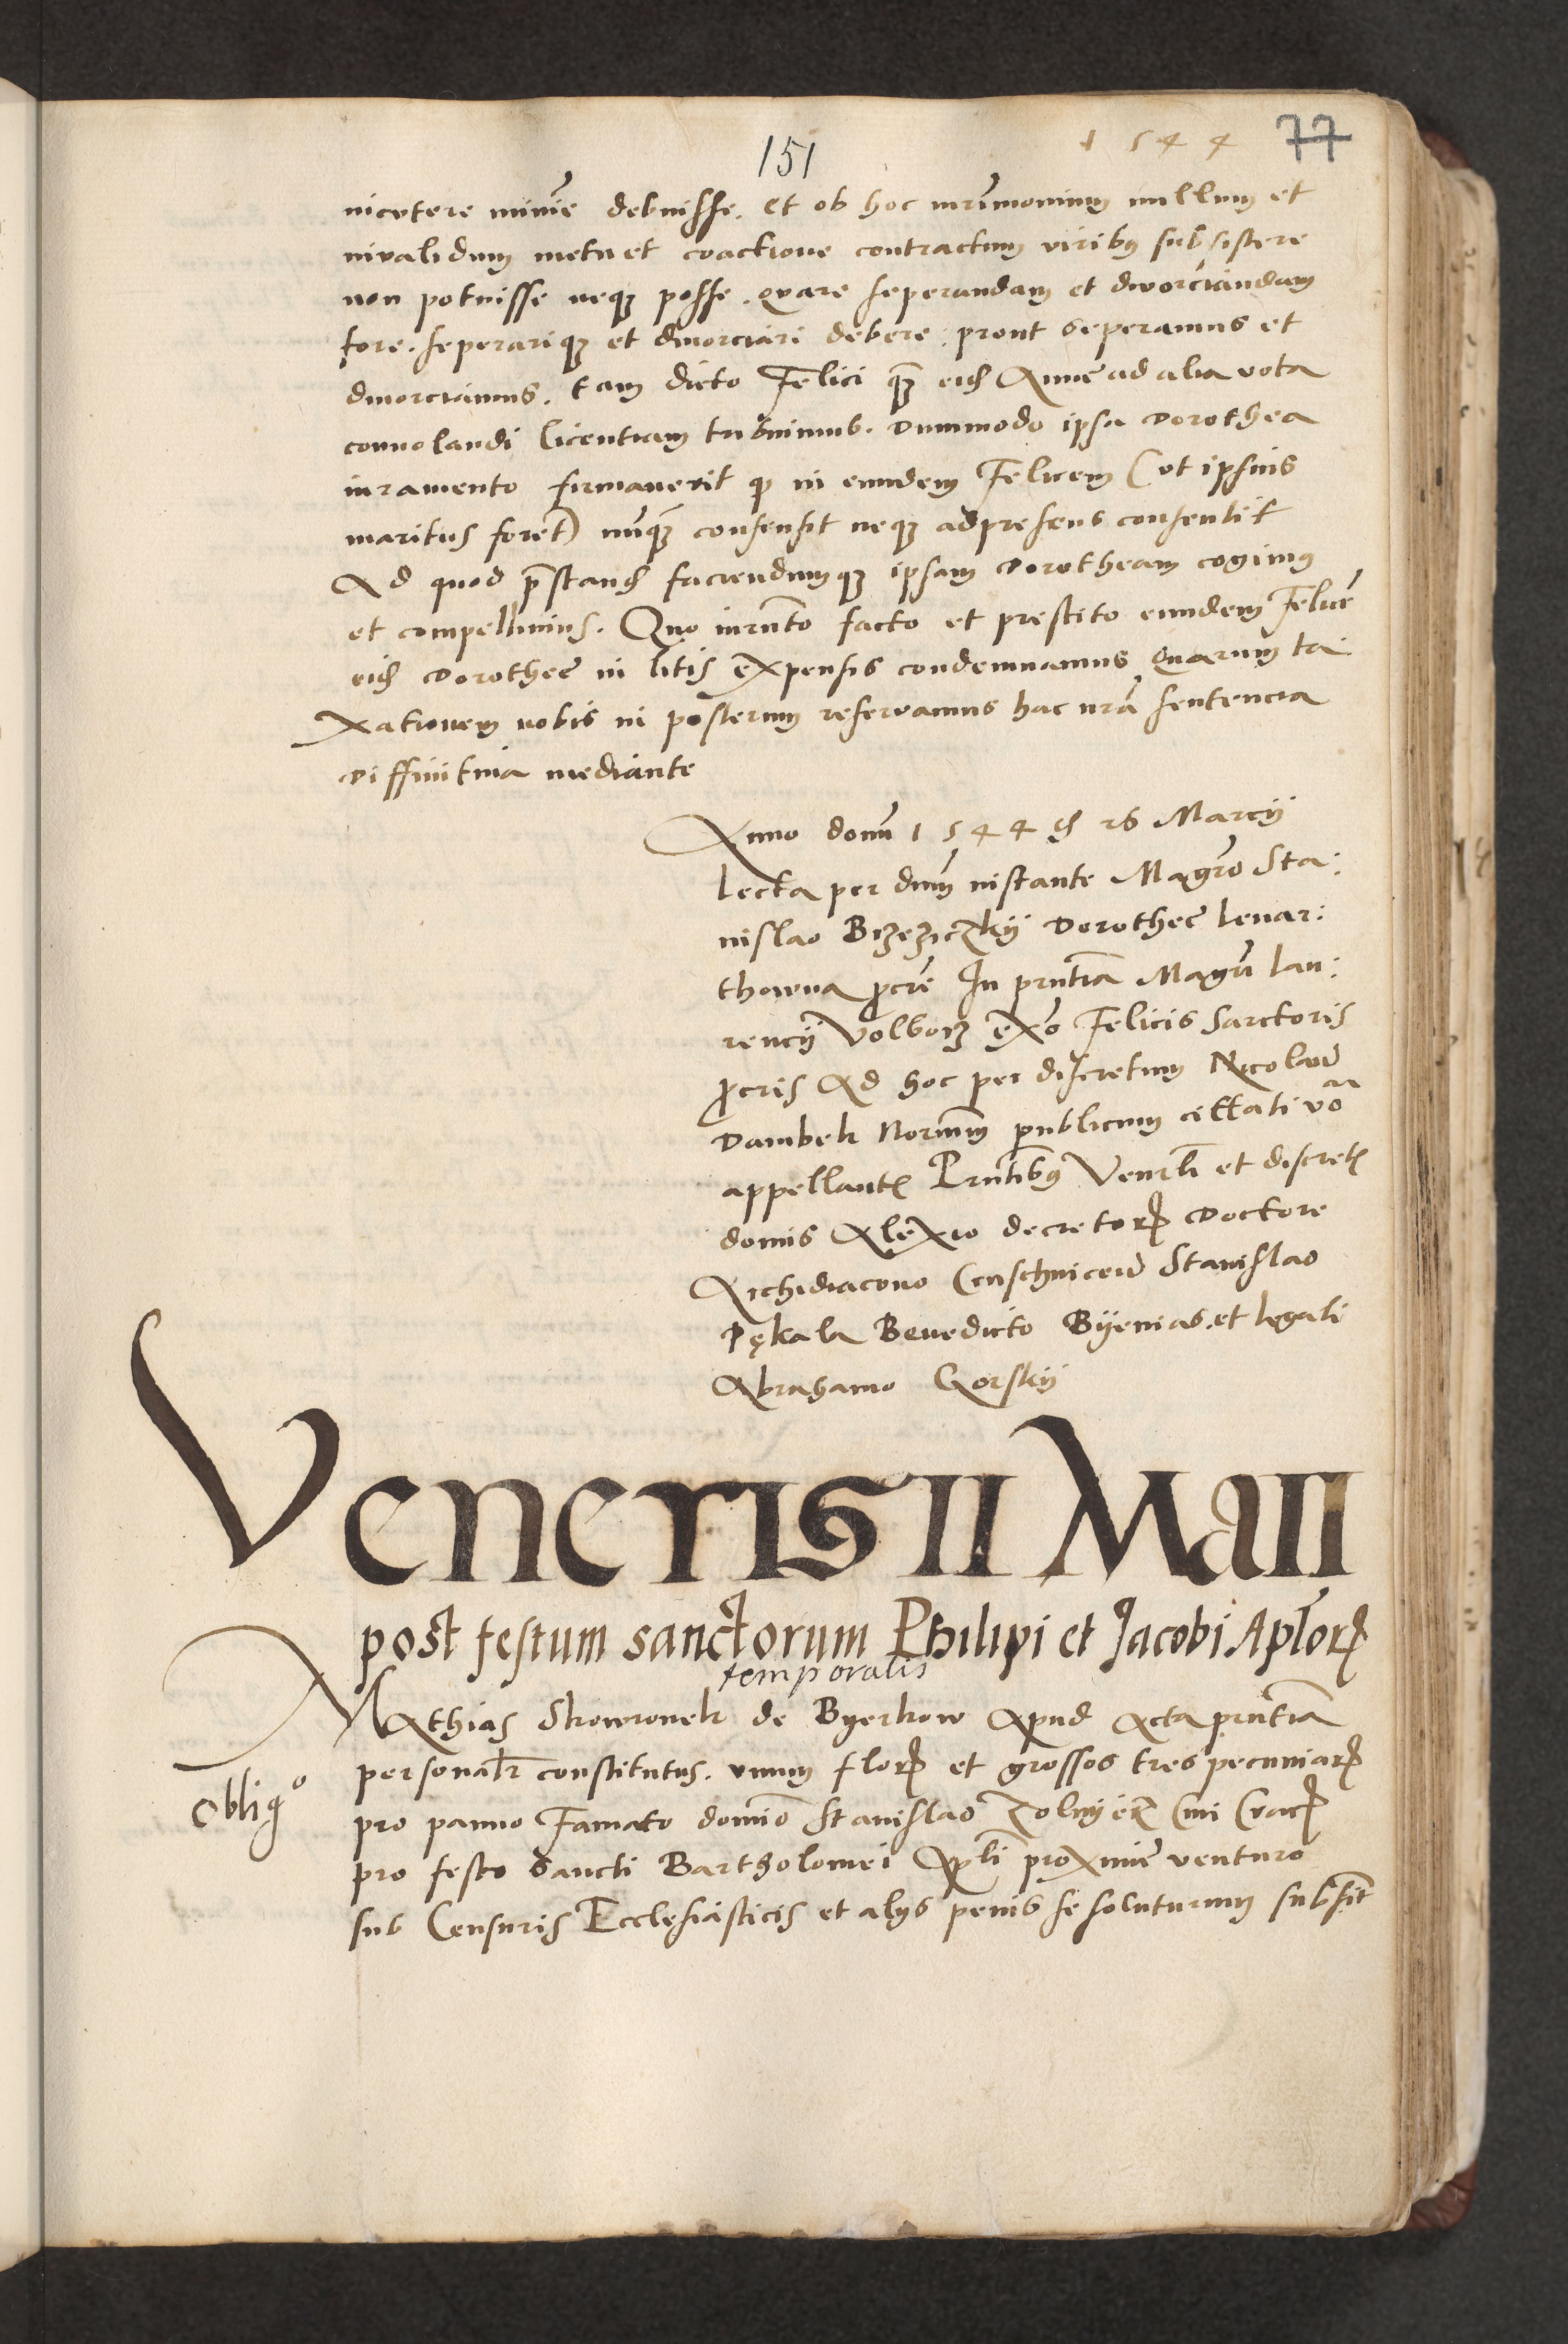 151
1544 77
nicetere minime debuisse. et ob hoc mr̄imonium nullum et
invalidum metu et coactione contractum viribus subsistere
non potuisse neqꝫ posse. quare seperandam et divorciandam
fore. seperariqꝫ et divorciari debere. prout seperamus et
divorciamus. tam dicto Felici qꝫ eid Anne ad alia vota
convolandi licentiam tribuimus. Dummodo ipsa Dorothea
iuramento firmaverit qꝫ in eundem Felicem (vt ipsius
maritus foret) nūqꝫ consensit neqꝫ ad presens consentit
Ad quod p̄stand faciendumqꝫ ipsam Dorotheam cogimus
et compellimus. Quo iurn̄to facto et prestito eundem Felicē
eid Dorothee in litis expensis condemnamus quarum ta
xationem nobis in posterum reservamus hac nr̄a sentencia
Diffinitiva mediante
Anno domi 1544 d 26 Marcij
lecta per dnm instante Magr̄o Sta:
nislao Brzezyczkij Dorothee Lenar:
thowna p̄cre In pn̄tia Magri Lau:
rencij Volborz ex̄o Felicis Sartoris
p̄cris Ad hoc per discretum Nicolaū
Dambek Norium publicum cittati vo
appellant Pn̄tibus Venrli et discret
domis Alexio decretorꝫ Doctore
Archidiacono Stanislao
Pękala Benedicto Byenias. et legali
Abrahamo Gorskij
Veneris II Maii
post festum sanctorum Philipi et Jacobi Aplorꝫ
temporalis
Mathias Skowronek de Byerkow Apud Acta pn̄tia
personalr constitutus. vnum florꝫ et grossos tres pecuniarꝫ
obligo
pro panno Famato domino Stanislao Zolnijerz Civi Cracꝫ
pro festo Sancti Bartholomei Apli proxime venturo
sub Censuris Ecclesiasticis et alys penis se soluturum subsit